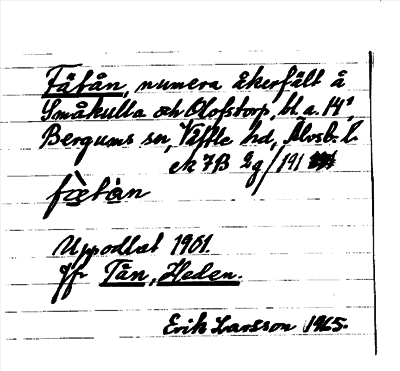 Fätån, numera åkerfält å
Småkulla och Olofstorp, bl. a. 14¹,
Bergums sn, Vättle hd, Älvsb. l.
ek 7B 2g/191
fòetàn
Uppodlat 1901.
Jfr Tån, Heden.
Erik Larsson 1965.